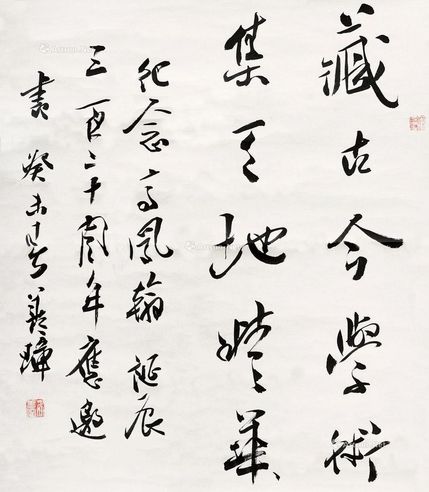 藏古今學術
集天地精華
紀念高鳳翰誕辰
三百二十周年應邀
書癸未